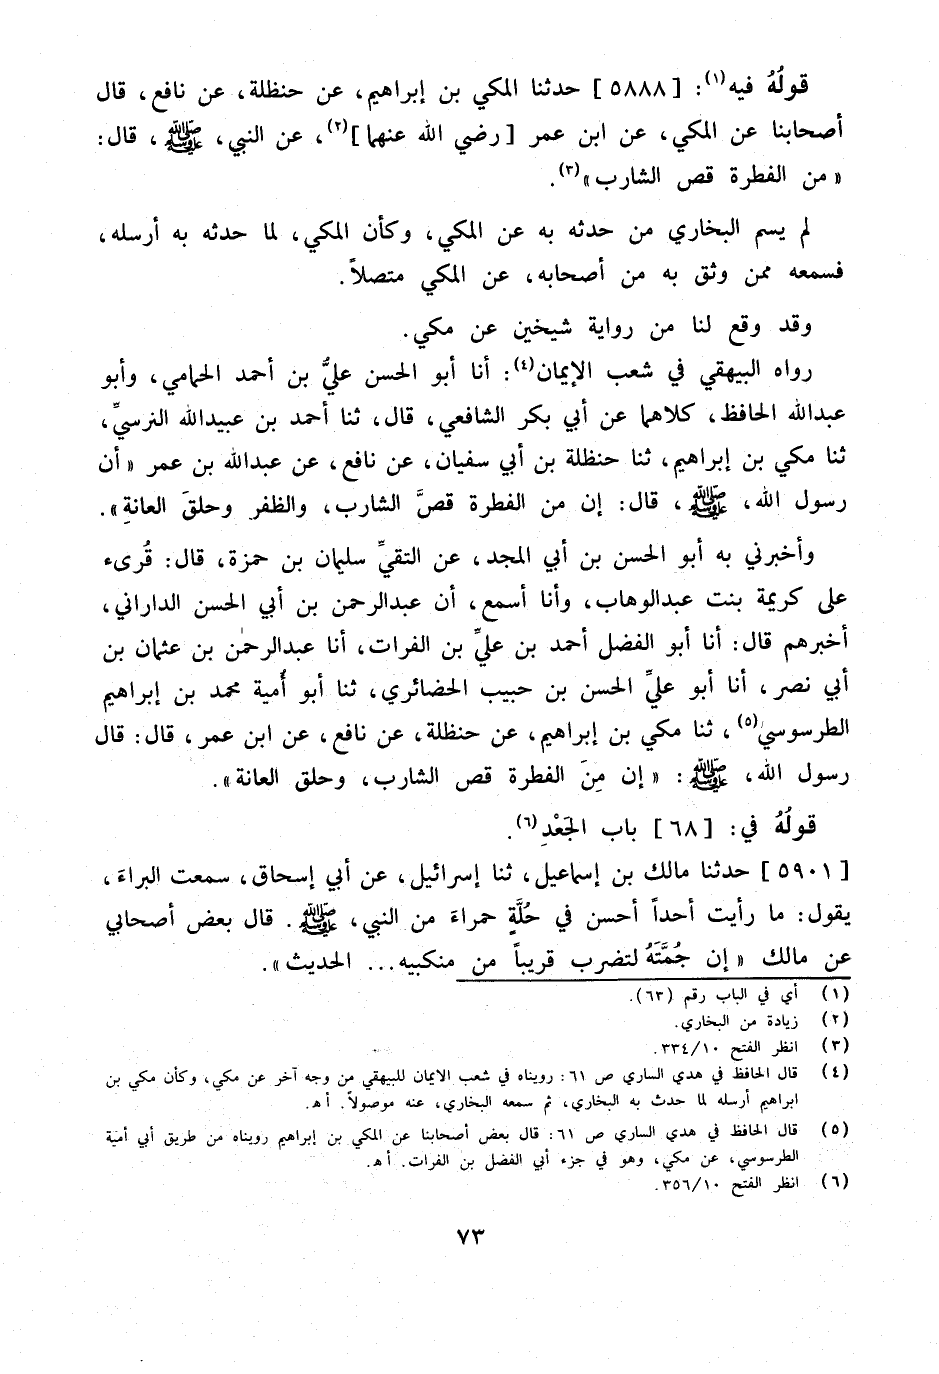 قولُهُ فيه(١): [٥٨٨٨] حدثنا المكي بن إبراهيم، عن حنظلة، عن نافع، قال
أصحابنا عن المكي، عن ابن عمر [رضي الله عنهما](٢)، عن النبي، ﷺ، قال:
«من الفطرة قص الشارب»(٣).
لم يسم البخاري من حدثه به عن المكي، وكأن المكي، لما حدثه به أرسله،
فسمعه ممن وثق به من أصحابه، عن المكي متصلاً.
وقد وقع لنا من رواية شيخين عن مكي.
رواه البيهقي في شعب الإيمان(٤): أنا أبو الحسن عليُّ بن أحمد الحمامي، وأبو
عبدالله الحافظ، كلاهما عن أبي بكر الشافعي، قال، ثنا أحمد بن عبيدالله النرسيِّ،
ثنا مكي بن إبراهيم، ثنا حنظلة بن أبي سفيان، عن نافع، عن عبدالله بن عمر «أن
رسول الله، ﷺ، قال: إن من الفطرة قصَّ الشارب، والظفر وحلقَ العانةِ».
وأخبرني به أبو الحسن بن أبي المجد، عن التقيِّ سليمان بن حمزة، قال: قُرىء
على كريمة بنت عبدالوهاب، وأنا أسمع، أن عبدالرحمن بن أبي الحسن الداراني،
أخبرهم قال: أنا أبو الفضل أحمد بن عليِّ بن الفرات، أنا عبدالرحمٰن بن عثمان بن
أبي نصر، أنا أبو عليِّ الحسن بن حبيب الحضائري، ثنا أبو أُمية محمد بن إبراهيم
الطرسوسي(٥)، ثنا مكي بن إبراهيم، عن حنظلة، عن نافع، عن ابن عمر، قال: قال
رسول الله، ﷺ: «إن مِنَ الفطرة قص الشارب، وحلق العانة».
قولُهُ في: [٦٨] باب الجَعْدِ(٦).
[٥٩٠١] حدثنا مالك بن إسماعيل، ثنا إسرائيل، عن أبي إسحاق، سمعت البراءَ،
يقول: ما رأيت أحداً أحسن في حُلَّةٍ حمراءَ من النبي، ﷺ. قال بعض أصحابي
عن مالك «إن جُمَّتَهُ لتضرب قريباً من منكبيه... الحديث».
(١) أي في الباب رقم (٦٣).
(٢) زيادة من البخاري.
(٣) انظر الفتح ٣٣٤/١٠.
(٤) قال الحافظ في هدي الساري ص ٦١: رويناه في شعب الايمان للبيهقي من وجه آخر عن مكي، وكأن مكي بن
ابراهيم أرسله لما حدث به البخاري، ثم سمعه البخاري، عنه موصولاً. أ هـ.
(٥) قال الحافظ في هدي الساري ص ٦١: قال بعض أصحابنا عن المكي بن إبراهيم رويناه من طريق أبي أمية
الطرسوسي، عن مكي، وهو في جزء أبي الفضل بن الفرات. أ هـ.
(٦) انظر الفتح ٣٥٦/١٠.
٧٣